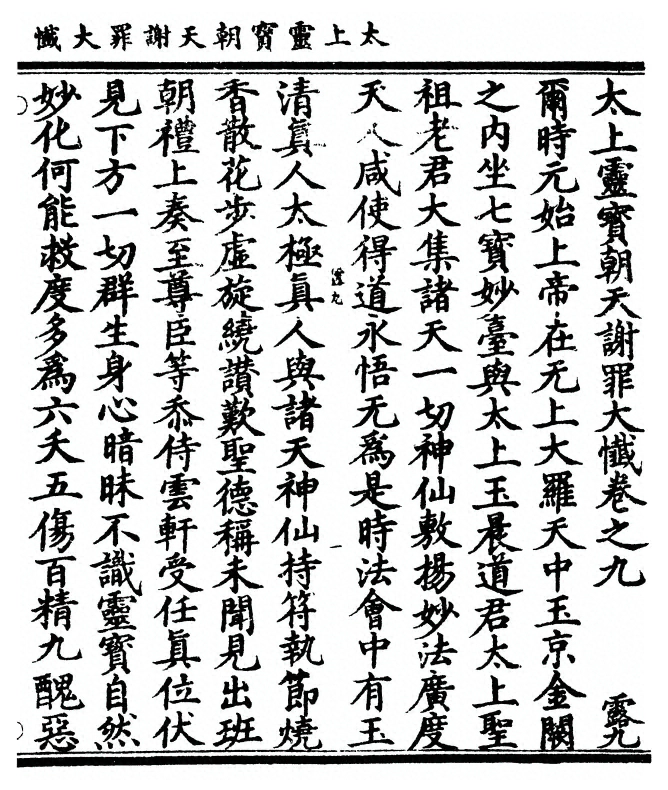 太上靈寳朝天謝罪大懺
太上靈寳朝天謝罪大懺卷之九 露九
爾時元始上帝在无上大羅天中玉京金闕
之内坐七寳妙臺與太上玉晨道君太上聖
祖老君大集諸天一切神仙敷揚妙法廣度
天人咸使得道永悟无爲是時法會中有玉
清眞人太極眞人與諸天神仙持符執節燒
香散花步虛旋繞讃歎聖德稱未聞見出班
朝禮上奏至尊臣等忝侍雲軒受任眞位伏
見下方一切群生身心暗昧不識靈寳自然
妙化何能救度多爲六夭五傷百精九醜惡